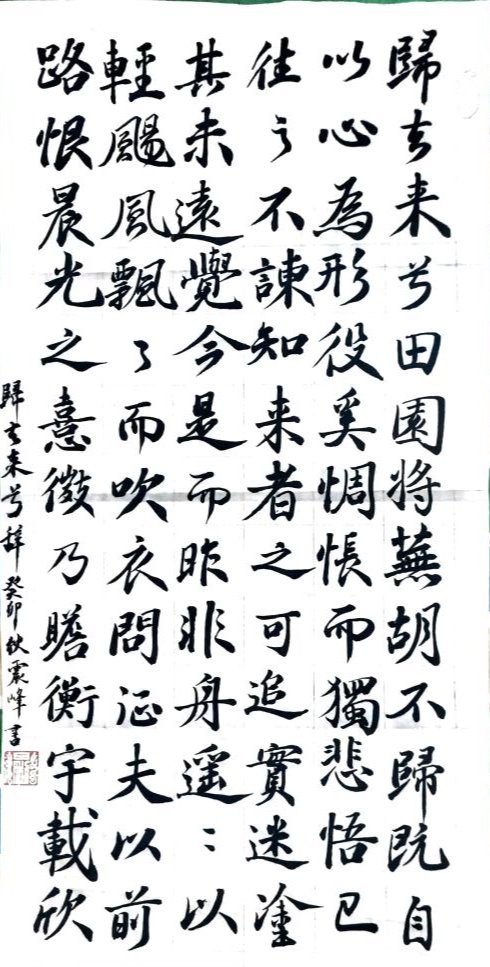 歸去来兮田園将蕪胡不歸既自
以心為形役奚惆悵而獨悲悟已
往之不諫知来者之可追實迷塗
其未遠覺今是而昨非舟遥々以
輕颺風飄々而吹衣問征夫以前
路恨晨光之熹微乃瞻衡宇載欣
歸去来兮辞 癸卯秋震峰書